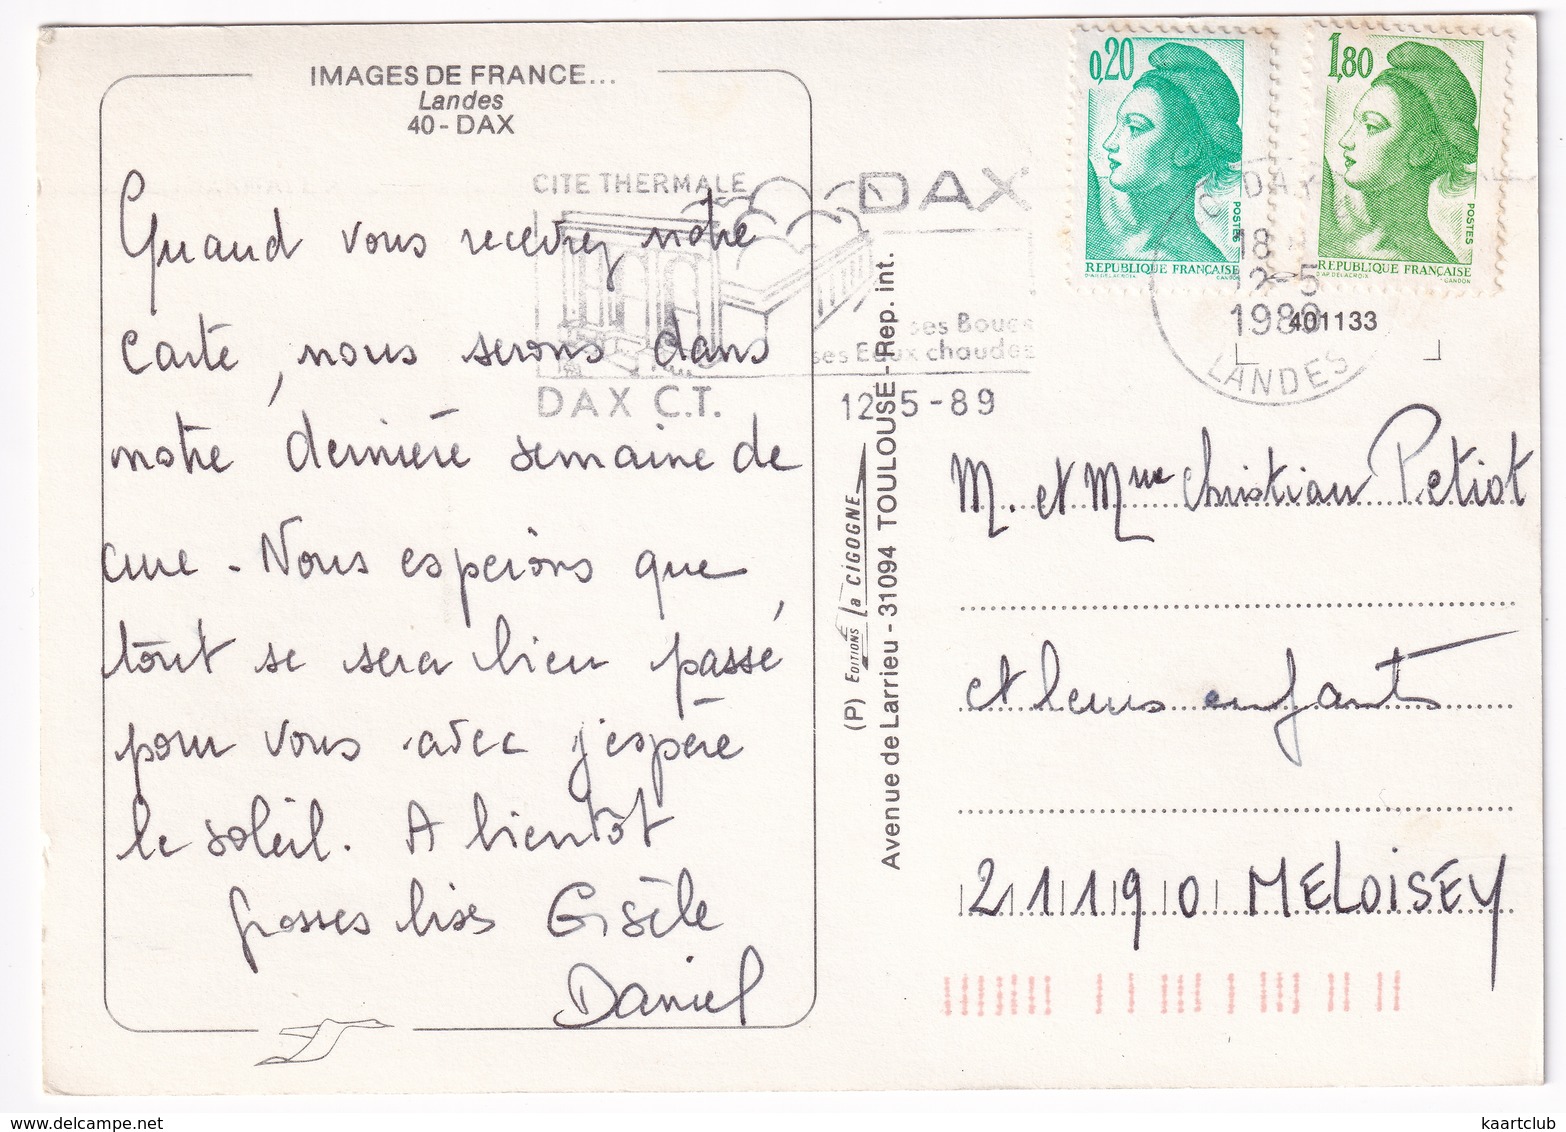 IMAGES DE FRANCE...
Landes
40 - DAX
Quand vous recevrez notre
carte, nous serons dans
notre dernière semaine de
cure - Nous espérons que
tout se sera bien passé,
pour vous avec j'espère
le soleil. A bientôt
grosses bises Gisèle
Daniel
CITE THERMALE
DAX
ses Boues
ses Eaux chaudes
DAX C.T.
12-5-89
(P) EDITIONS la CIGOGNE
Avenue de Larrieu - 31094 TOULOUSE - Rep. int.
0,20
POSTES
REPUBLIQUE FRANÇAISE
GANDON
1,80
POSTES
REPUBLIQUE FRANÇAISE
D'AP DELACROIX
GANDON
DAX
18 H
12-5
1989
LANDES
401133
M. et Mme Christian Petiot
et leurs enfants
21190 MELOISEY
www.delcampe.net
kaartclub